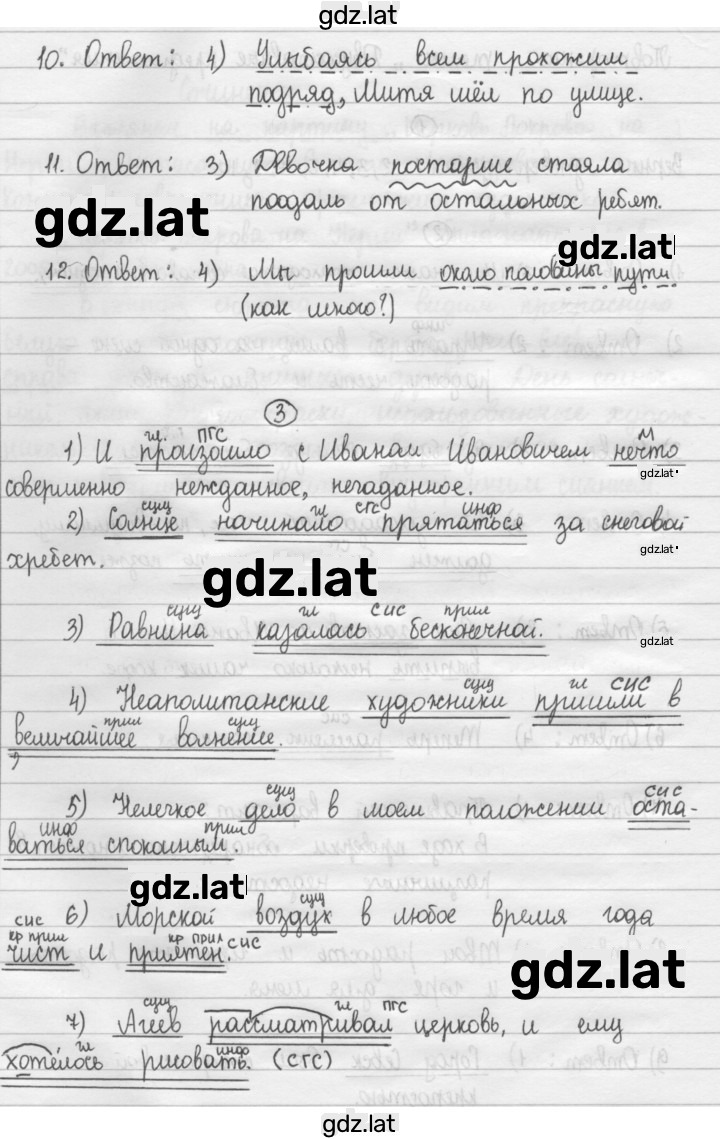 gdz.lat
10. Ответ: 4) Улыбаясь всем прохожим
подряд, Митя шёл по улице.
11. Ответ: 3) Девочка постарше стояла
поодаль от остальных ребят.
gdz.lat
gdz.lat
12. Ответ: 4) Мы прошли около половины пути
(как много?)
3
гл. ПГС м
1) И произошло с Иваном Ивановичем нечто
gdz.lat
совершенно нежданное, негаданное.
сущ гл СГС инф
2) Солнце начинало прятаться за снеговой
gdz.lat
хребет.
gdz.lat
сущ гл СИС прил
3) Равнина казалась бесконечной.
gdz.lat
сущ гл СИС
4) Неаполитанские художники пришли в
прил сущ
величайшее волнение.
сущ СИС
5) Нелегкое дело в моем положении оста-
инф прил
ваться спокойным.
gdz.lat
СИС сущ
6) Морской воздух в любое время года
кр прил кр прил СИС
чист и приятен.
gdz.lat
сущ гл ПГС
7) Агеев рассматривал церковь, и ему
гл инф
хотелось рисовать. (СГС)
gdz.lat